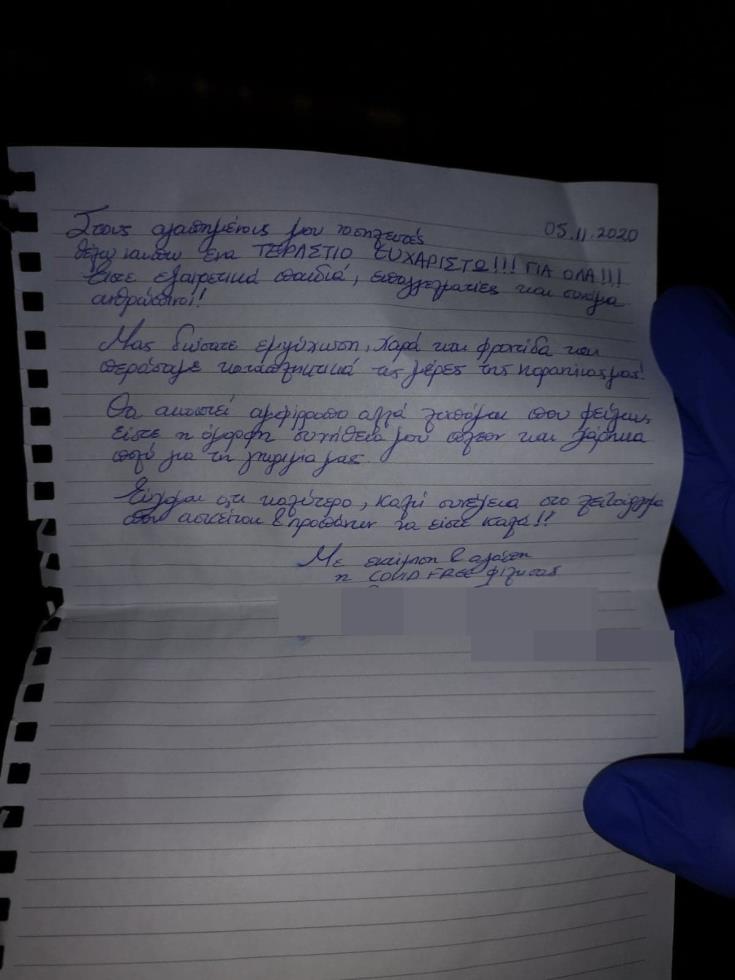 Στους αγαπημένους μου νοσηλευτές 05.11.2020
θέλω να πω ένα ΤΕΡΑΣΤΙΟ ΕΥΧΑΡΙΣΤΩ!!! ΓΙΑ ΟΛΑ!!!
Είστε εξαιρετικά παιδιά, επαγγελματίες και συνάμα
άνθρωποι!
Μας δώσατε εμψύχωση, χαρά και φροντίδα και
περάσαμε καταπληκτικά τις μέρες της καραντίνας μας!
Θα ακουστεί αμφίρροπο αλλά λυπάμαι που φεύγω,
είστε η όμορφη συνήθειά μου πλέον και χάρηκα
πολύ για τη γνωριμία μας.
Εύχομαι ό,τι καλύτερο, καλή συνέχεια στο λειτούργημα
που ασκείτε & προπάντων να είστε καλά!!
Με εκτίμηση & αγάπη
η COVID FREE φίλη σας